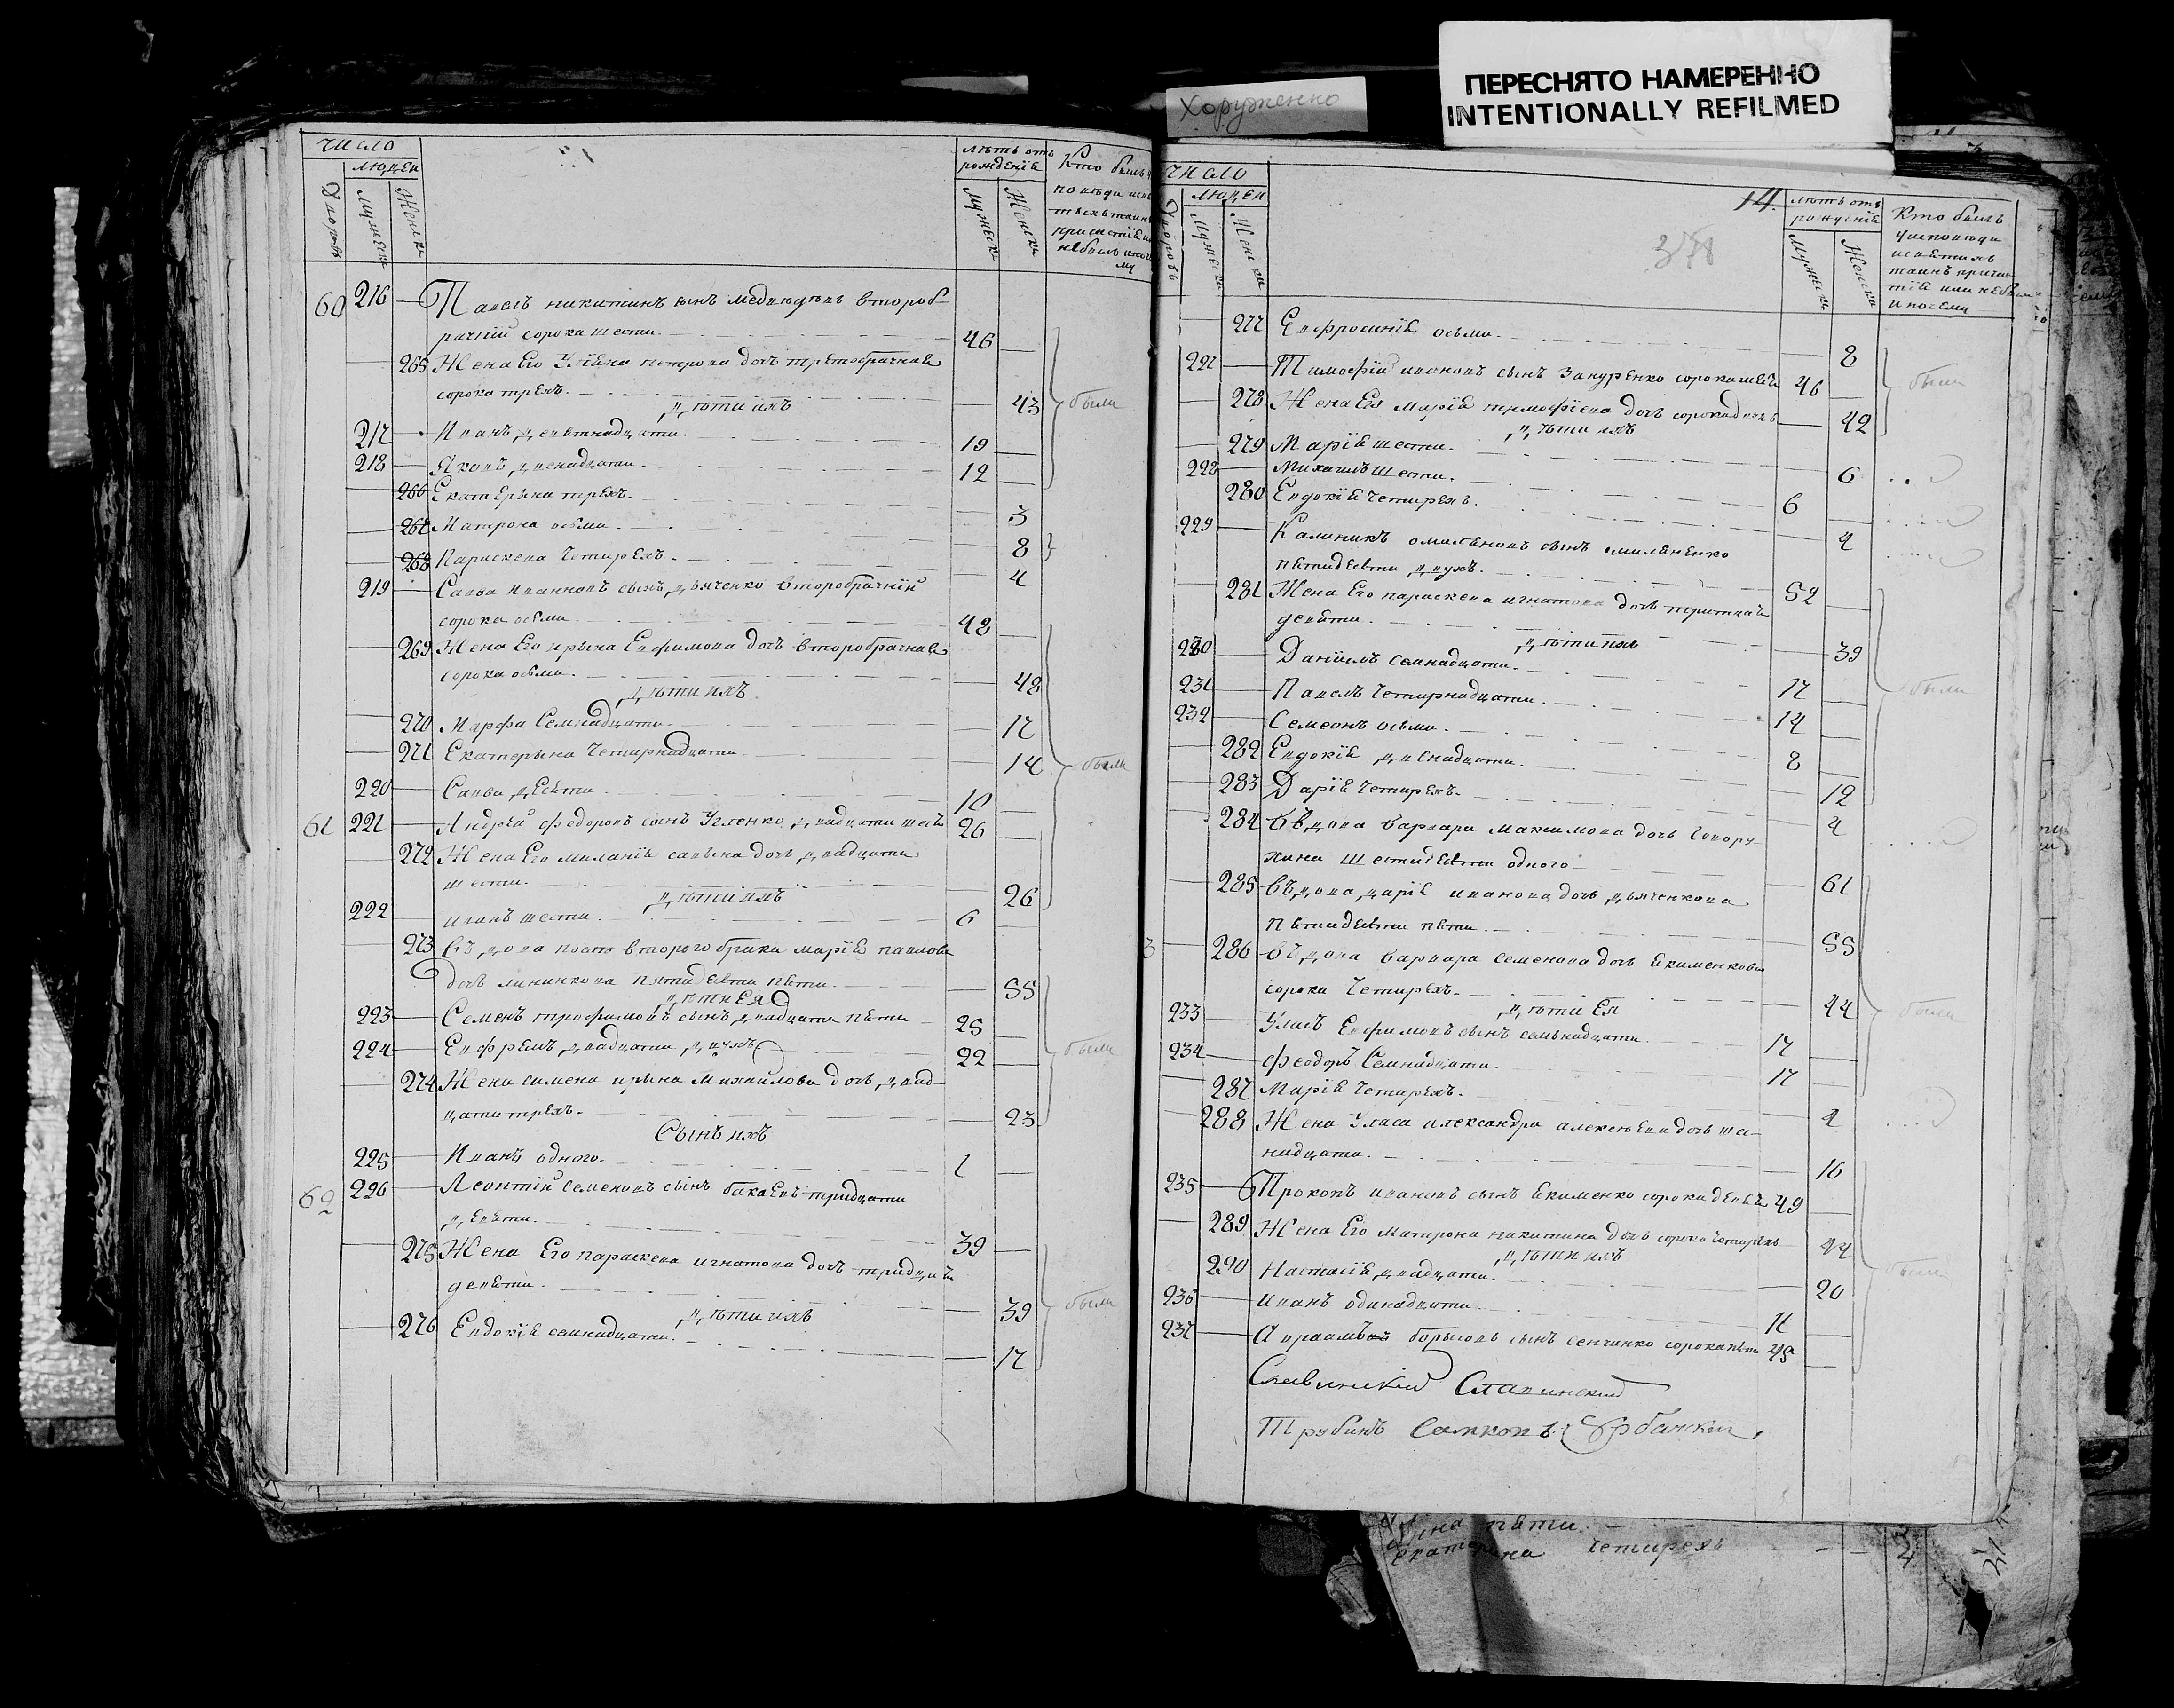 ПЕРЕСНЯТО НАМЕРЕННО
INTENTIONALLY REFILMED
Хоруженко
число
людей
Дворовъ
Мужеска
Женска
лѣтъ отъ
рожденія
Мужеска
Женска
Кто былъ
60 216 Павелъ никитинъ сынъ медведевъ второб-
рачній сорока шести 46
265 Жена Его Уліяна петрова дочь третобрачная
сорока трехъ 43 были
дѣти ихъ
217 Иванъ девятнадцати 19
218 Яковъ двенадцати 12
266 Екатерына трехъ 3
267 Матрона осьми 8
268 Параскева Четирехъ 4
219 Савва Иванновъ сынъ дьяченко второбрачній
сорока осьми 48
269 Жена Его ирына Ефимова дочь второбрачная
сорока осьми 48
дѣти ихъ
270 Марфа Семнадцати 17
271 Екатерына Четирнадцати 14 были
220 Савва десяти 10
61 221 Андрей федоровъ сынъ Угленко двадцати шесть 26
272 Жена Его миланія савына дочь двадцати
шести 26
дѣти ихъ
222 иванъ шести 6
273 Въдова второго брака марія павлова
дочь пятидесяти пяти 55
дѣти Ея
223 Семенъ трофимовъ сынъ двадцати пяти 25
224 Ефремъ двадцати двухъ 22 были
274 Жена симена ирына Михайлова дочь двад-
цати трехъ 23
Сынъ ихъ
225 Иванъ одного 1
62 226 Леонтій Семеновъ сынъ бакаевъ тридцати
девяти 39
275 Жена Его параскева игнатова дочь тридцать
девяти 39 были
дѣти ихъ
276 Евдокія семнадцати 17
число
людей
Дворовъ
Мужеска
Женска
14.
лѣтъ отъ
рожденія
Мужеска
Женска
Кто былъ
277 Ефросинія осьми 8
227 Тимофій ивановъ сынъ Зануренко сорока шесть 46 были
278 Жена Его Марія тимофіева дочь сорока двухъ 42
дѣти ихъ
279 Марія шести 6
228 Михаилъ шести 6
280 Евдокія Четирехъ 4
229 Калиникъ омиляновъ сынъ омиляненко
пятидесяти двухъ 52
281 Жена Его параскева игнатова дочь тритцать
девяти 39
дѣти ихъ
230 Даніилъ семнадцати 17
231 Павелъ Четирнадцати 14 были
232 Семеонъ осьми 8
282 Евдокія двенадцати 12
283 Дарія Четирехъ 4
284 Въдова варвара Максимова дочь
шестидесяти одного 61
285 Въдова дарія иванова дочь дьяченкова
пятидесяти пяти 55
286 Въдова варвара Семенова дочь Якименкова
сорока Четирехъ 44
дѣти Ея
233 Уласъ Ефимовъ сынъ семьнадцати 17
234 Феодоръ Семнадцати 17
287 Марія Четирехъ 4
288 Жена Уласа александра алексѣева дочь шес-
надцати 16
235 Прокопъ ивановъ сынъ Якименко сорока девять 49
289 Жена Его Матрона никитина дочь сорока Четирехъ 44
дѣти ихъ
290 Настасія двадцати 20 были
236 Иванъ одинадцати 11
237 Авраамъ борысовъ сынъ сенчинко сорока пяти 45
Славинскій Славинский
Трубинъ
Екатерина Четирехъ 4